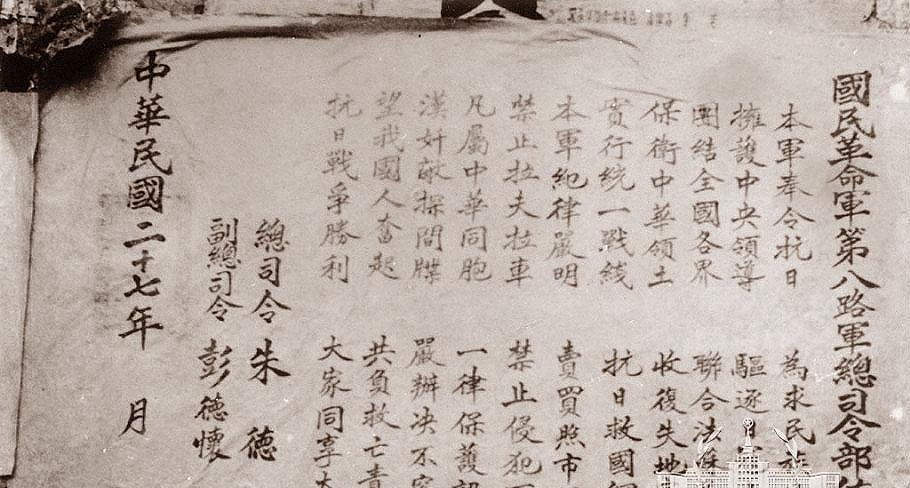 國民革命軍第八路軍總司令部
本軍奉令抗日 為求民族
擁護中央領導 驅逐
團結全國各界 聯合法
保衛中華領土 收復失地
實行統一戰綫 抗日救國
本軍紀律嚴明 賣買照市
禁止拉夫拉車 禁止侵犯
凡屬中華同胞 一律保護
漢奸敵探間牒 嚴辦決不
望我國人奮起 共負救亡責
抗日戰爭勝利 大家同享
總司令 朱 德
副總司令 彭德懷
中華民國二十七年 月